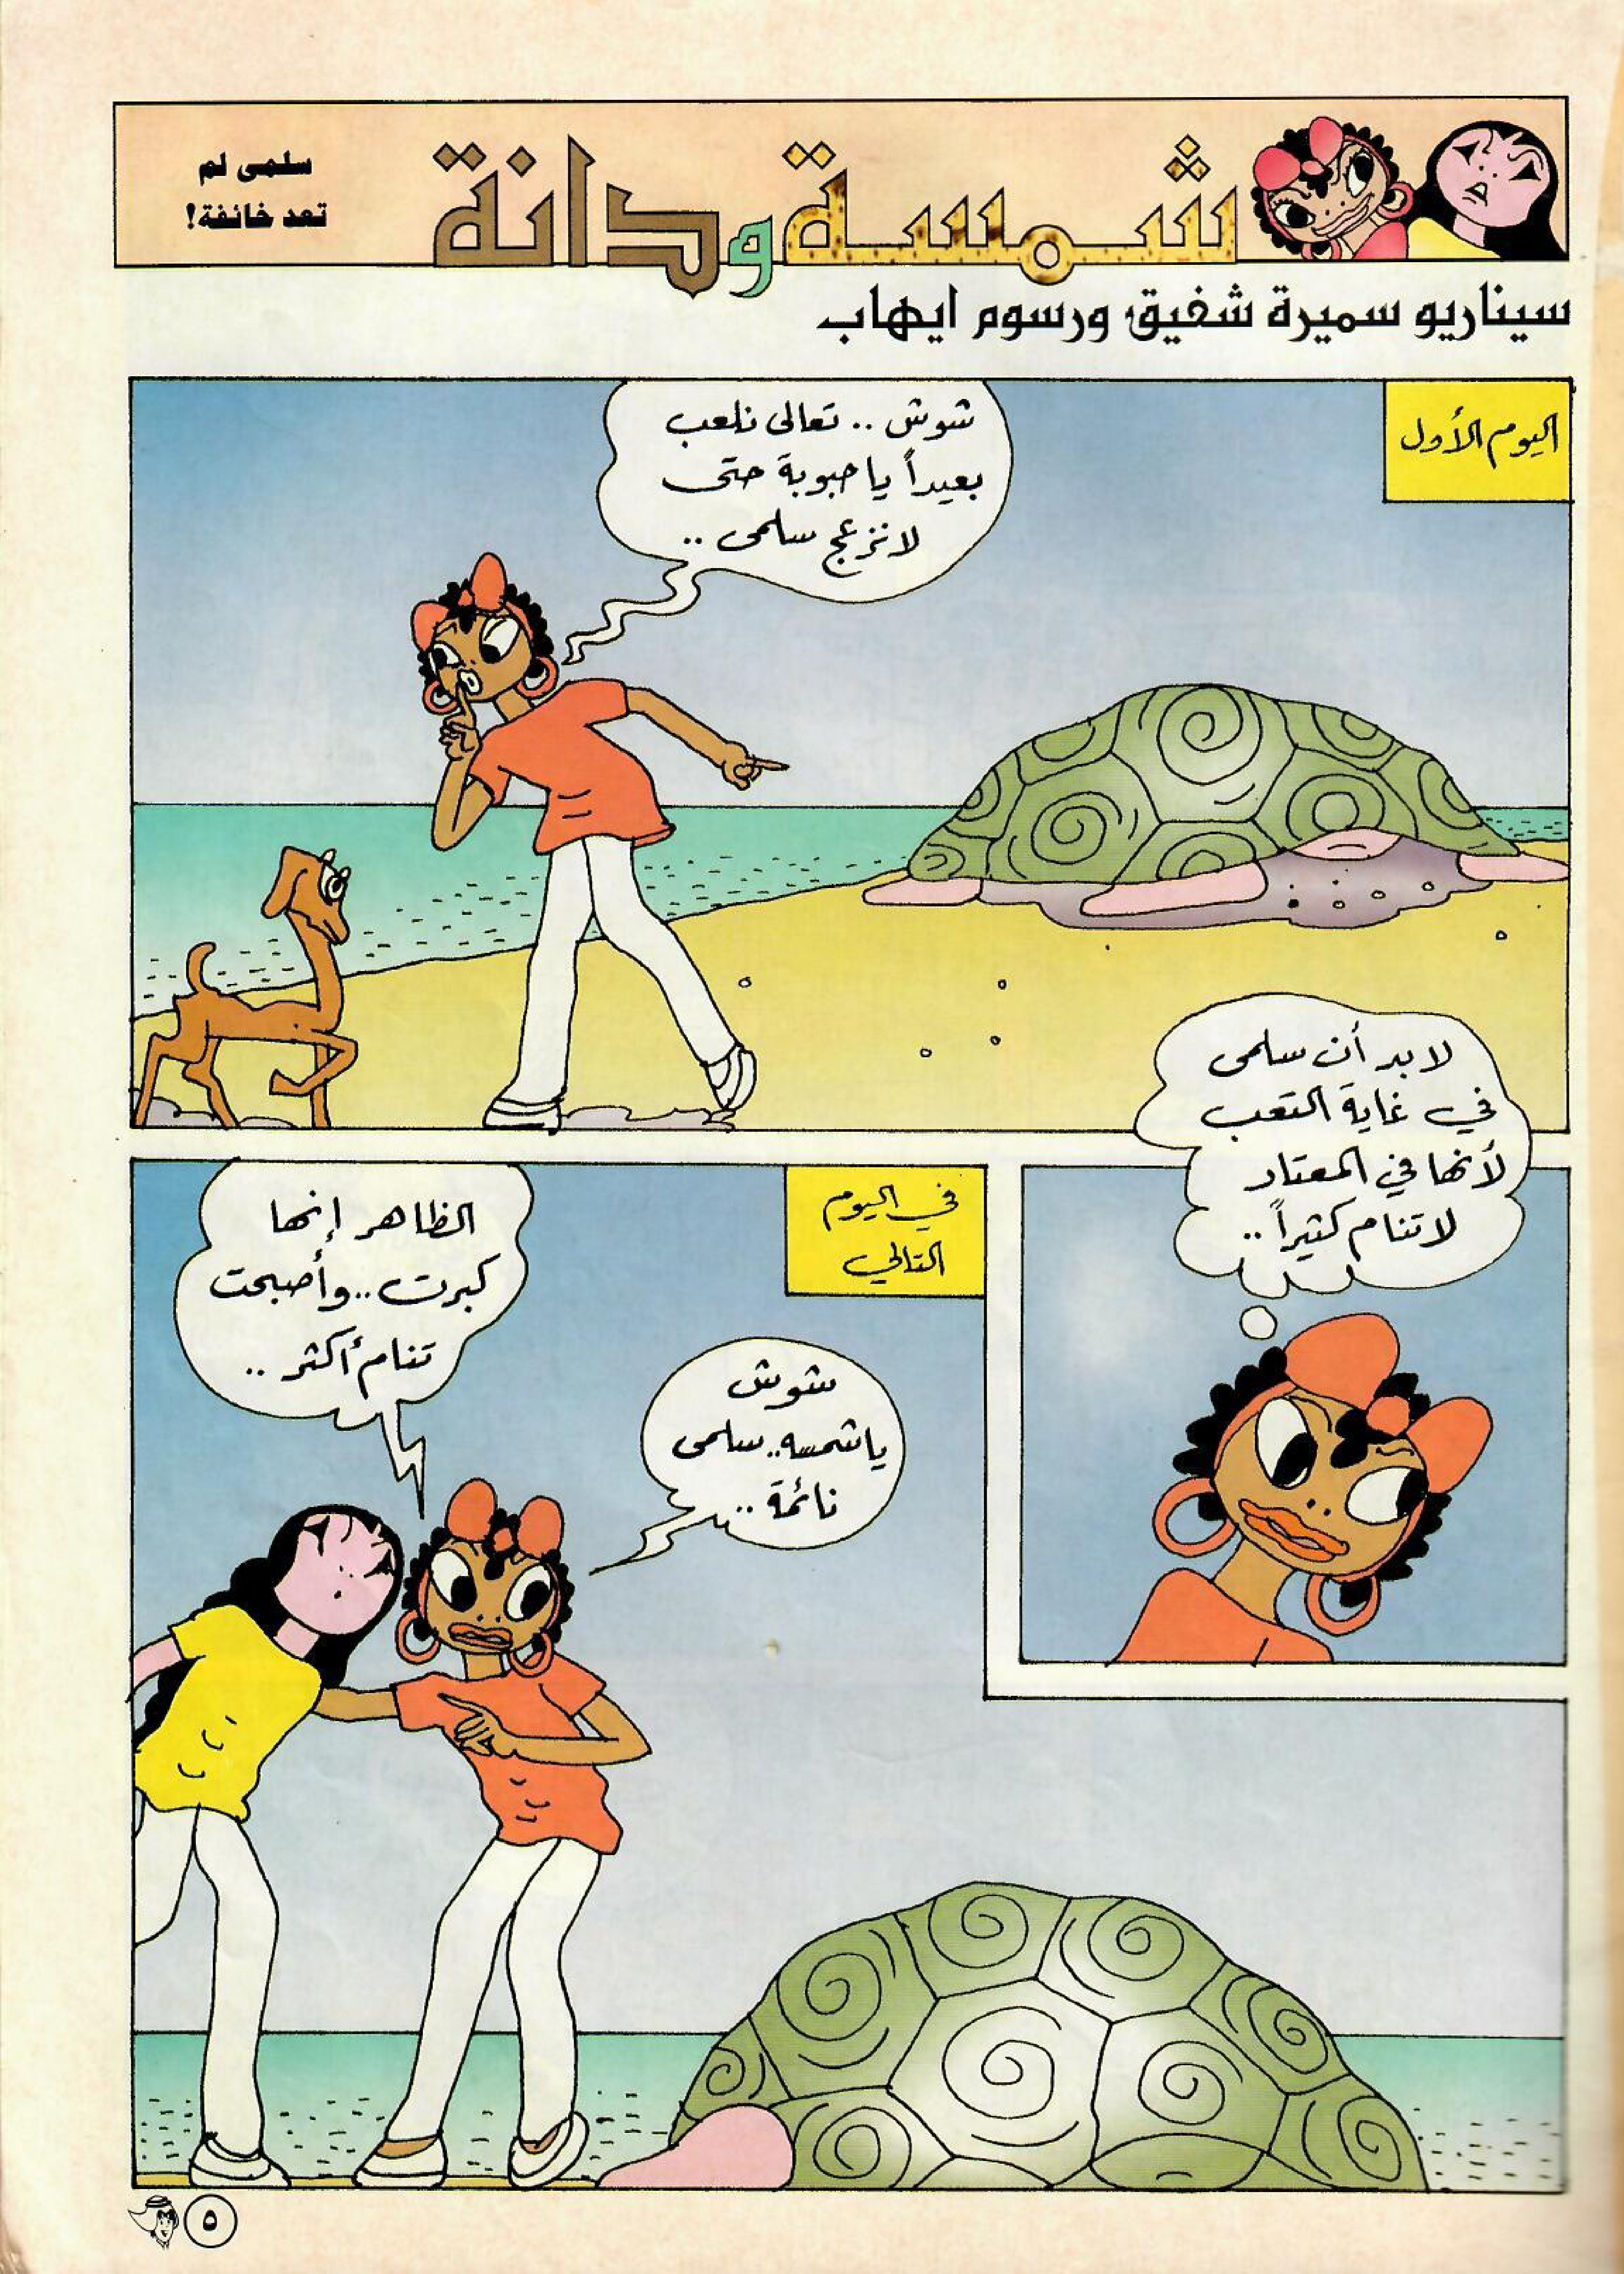 شمسة ودانة
سلمى لم
تعد خائفة!
سيناريو سميرة شفيق، ورسوم ايهاب
اليوم الأول
شوش .. تعالى نلعب
بعيداً يا حبوبة حتى
لا نزعج سلمى ..
لا بد أن سلمى
في غاية التعب
لأنها في المعتاد
لا تنام كثيراً ..
في اليوم
التالي
شوش
يا شمسه.. سلمى
نائمة ..
الظاهر إنها
كبرت .. وأصبحت
تنام أكثر ..
٥